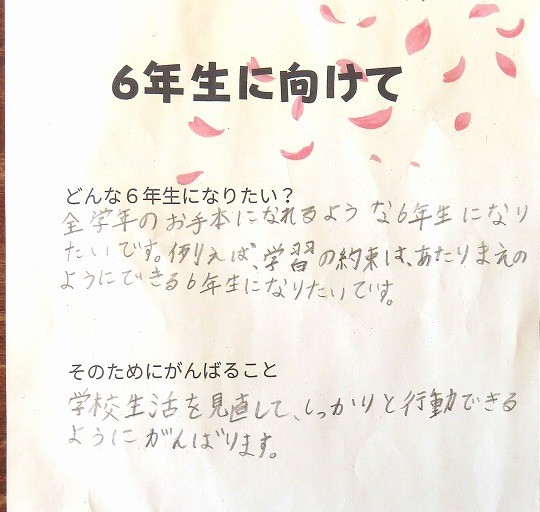 6年生に向けて
どんな6年生になりたい？
全学年のお手本になれるような6年生になり
たいです。例えば、学習の約束は、あたりまえの
ようにできる6年生になりたいです。
そのためにがんばること
学校生活を見直して、しっかりと行動できる
ようにがんばります。